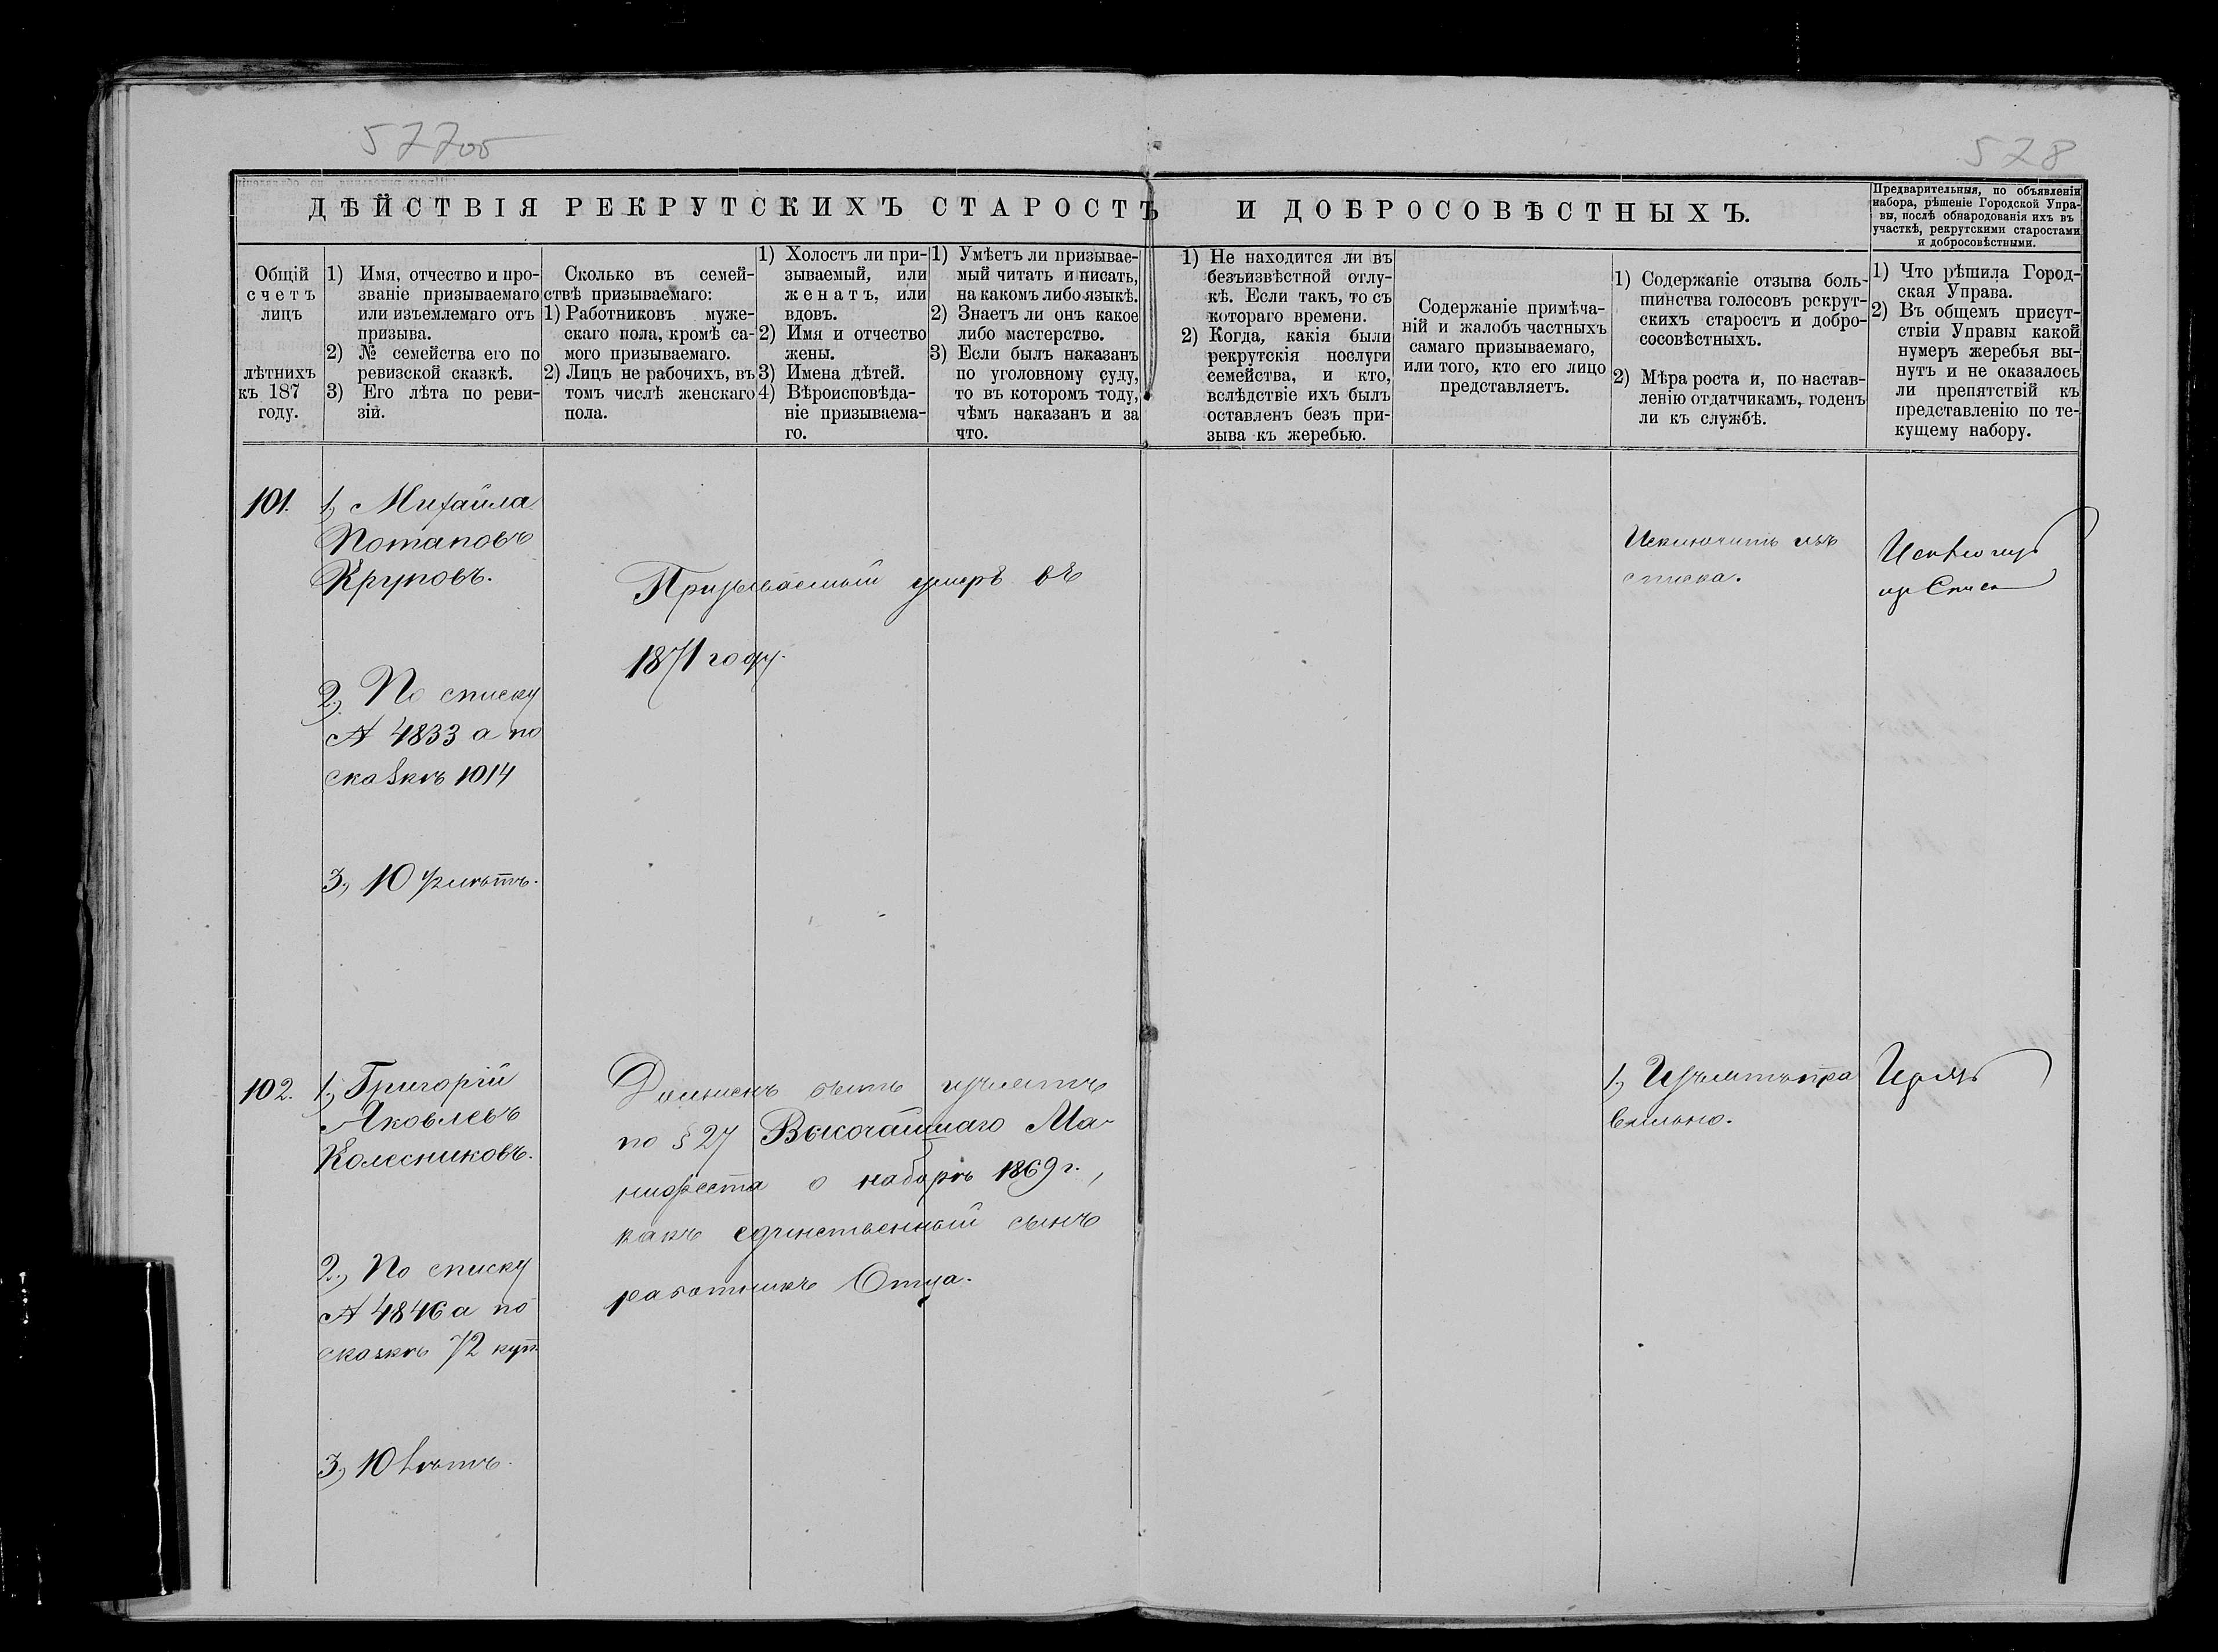 577об
528
ДѢЙСТВІЯ РЕКРУТСКИХЪ СТАРОСТЪ И ДОБРОСОВѢСТНЫХЪ.
Предварительныя, по объявленіи
набора, рѣшеніе Городской Упра-
вы, послѣ обнародованія ихъ въ
участкѣ, рекрутскими старостами
и добросовѣстными.
Общій
счетъ
лицъ
лѣтнихъ
къ 187
году.
1) Имя, отчество и про-
званіе призываемаго
или изъемлемаго отъ
призыва.
2) № семейства его по
ревизской сказкѣ.
3) Его лѣта по реви-
зіи.
Сколько въ семей-
ствѣ призываемаго:
1) Работниковъ муже-
скаго пола, кромѣ са-
мого призываемаго.
2) Лицъ не рабочихъ, въ
томъ числѣ женскаго
пола.
1) Холостъ ли при-
зываемый, или
женатъ, или
вдовъ.
2) Имя и отчество
жены.
3) Имена дѣтей.
4) Вѣроисповѣда-
ніе призываема-
го.
1) Умѣетъ ли призывае-
мый читать и писать,
на какомъ либо языкѣ.
2) Знаетъ ли онъ какое
либо мастерство.
3) Если былъ наказанъ
по уголовному суду,
то въ которомъ году,
чѣмъ наказанъ и за
что.
1) Не находится ли въ
безъизвѣстной отлу-
кѣ. Если такъ, то съ
котораго времени.
2) Когда, какія были
рекрутскія послуги
семейства, и кто,
вслѣдствіе ихъ былъ
оставленъ безъ при-
зыва къ жеребью.
Содержаніе примѣча-
ній и жалобъ частныхъ
самаго призываемаго,
или того, кто его лицо
представляетъ.
1) Содержаніе отзыва боль-
шинства голосовъ рекрут-
скихъ старостъ и добро-
сосовѣстныхъ.
2) Мѣра роста и, по настав-
ленію отдатчикамъ, годенъ
ли къ службѣ.
1) Что рѣшила Город-
ская Управа.
2) Въ общемъ присут-
ствіи Управы какой
нумеръ жеребья вы-
нутъ и не оказалось
ли препятствій къ
представленію по те-
кущему набору.
101.
1, Михайла
Потаповъ
Круповъ.
2, По списку
№ 4833 а по
сказкѣ 1014
3, 10 лѣтъ.
Призываемый умеръ въ
1871 году.
Исключить изъ
списка.
102.
1, Григорій
Яковлевъ
Колесниковъ.
2, По списку
№ 4846 а по
сказкѣ 72 куп
3, 10 лѣтъ.
Долженъ быть изъятъ
по § 27 Высочайшаго Ма-
нифеста о наборѣ 1869 г.,
какъ единственный сынъ
работникъ Отца.
1, Изъятъ пра
вильно.